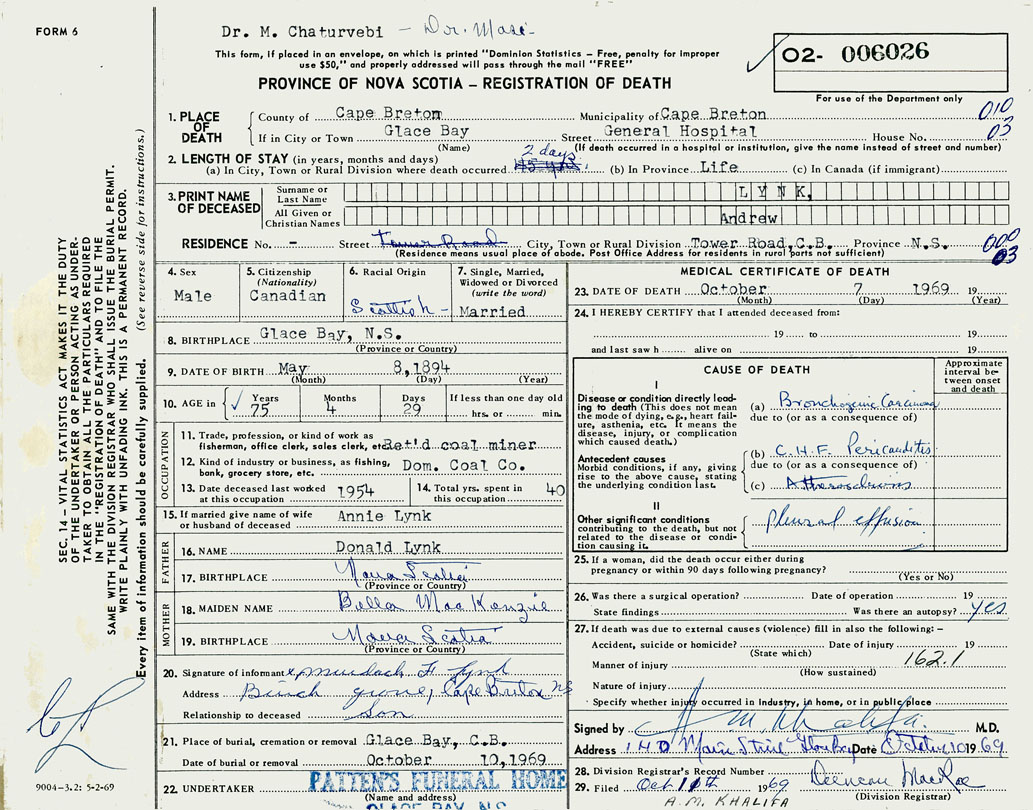 FORM 6
Dr. M. Chaturvebi — Dr. Masi
This form, if placed in an envelope, on which is printed "Dominion Statistics – Free, penalty for improper
use $50," and properly addressed will pass through the mail "FREE"
PROVINCE OF NOVA SCOTIA – REGISTRATION OF DEATH
02- 006026
For use of the Department only
1. PLACE OF DEATH
County of Cape Breton Municipality of Cape Breton 010
If in City or Town Glace Bay Street General Hospital House No. 03
(Name) (If death occurred in a hospital or institution, give the name instead of street and number)
2. LENGTH OF STAY (in years, months and days) 2 days
(a) In City, Town or Rural Division where death occurred (b) In Province Life (c) In Canada (if immigrant)
3. PRINT NAME OF DECEASED
Surname or Last Name LYNK,
All Given or Christian Names Andrew
RESIDENCE No. - Street Tower Road City, Town or Rural Division Tower Road, C.B. Province N.S. 000
(Residence means usual place of abode. Post Office Address for residents in rural parts not sufficient) 03
4. Sex
Male
5. Citizenship (Nationality)
Canadian
6. Racial Origin
Scottish -
7. Single, Married, Widowed or Divorced (write the word)
Married
8. BIRTHPLACE Glace Bay, N.S.
(Province or Country)
9. DATE OF BIRTH May 8, 1894
(Month) (Day) (Year)
10. AGE in ✓ Years Months Days If less than one day old
75 4 29 hrs. or min.
OCCUPATION
11. Trade, profession, or kind of work as
fisherman, office clerk, sales clerk, etc. Ret'd coal miner
12. Kind of industry or business, as fishing,
bank, grocery store, etc. Dom. Coal Co.
13. Date deceased last worked at this occupation 1954
14. Total yrs. spent in this occupation 40
15. If married give name of wife
or husband of deceased Annie Lynk
FATHER
16. NAME Donald Lynk
17. BIRTHPLACE Nova Scotia
(Province or Country)
MOTHER
18. MAIDEN NAME Bella MacKenzie
19. BIRTHPLACE Nova Scotia
(Province or Country)
20. Signature of informant x Murdoch F. Lynk
Address Birch grove, Cape Breton NS
Relationship to deceased Son
21. Place of burial, cremation or removal Glace Bay, C.B.
Date of burial or removal October 10, 1969
22. UNDERTAKER PATTEN'S FUNERAL HOME
(Name and address)
GLACE BAY, N.S.
MEDICAL CERTIFICATE OF DEATH
23. DATE OF DEATH October 7 1969 19
(Month) (Day) (Year)
24. I HEREBY CERTIFY that I attended deceased from:
19 to 19
and last saw h alive on 19
CAUSE OF DEATH
Approximate interval between onset and death
I
Disease or condition directly leading to death (This does not mean the mode of dying, e.g., heart failure, asthenia, etc. It means the disease, injury, or complication which caused death.)
(a) Bronchogenic Carcinoma
due to (or as a consequence of)
Antecedent causes
Morbid conditions, if any, giving rise to the above cause, stating the underlying condition last.
(b) C.H.F. Pericarditis
due to (or as a consequence of)
(c) Atherosclerosis
II
Other significant conditions contributing to the death, but not related to the disease or condition causing it.
pleural effusion
25. If a woman, did the death occur either during
pregnancy or within 90 days following pregnancy?
(Yes or No)
26. Was there a surgical operation? Date of operation 19
State findings Was there an autopsy? yes
27. If death was due to external causes (violence) fill in also the following: –
Accident, suicide or homicide? Date of injury 19
(State which)
Manner of injury 162.1
(How sustained)
Nature of injury
Specify whether injury occurred in Industry, in home, or in public place
Signed by A M Khalifa M.D.
Address Main Street Glace Bay Date October 10 1969
28. Division Registrar's Record Number
29. Filed Oct 10th 1969 Duncan MacRae
A.M. KHALIFA (Division Registrar)
SEC. 14 – VITAL STATISTICS ACT MAKES IT THE DUTY
OF THE UNDERTAKER OR PERSON ACTING AS UNDERTAKER TO OBTAIN ALL THE PARTICULARS REQUIRED
IN THE "REGISTRATION OF DEATH" AND TO FILE THE
SAME WITH THE DIVISION REGISTRAR WHO SHALL ISSUE THE BURIAL PERMIT.
WRITE PLAINLY WITH UNFADING INK. THIS IS A PERMANENT RECORD.
Every item of information should be carefully supplied. (See reverse side for instructions.)
9004–3.2: 5-2-69